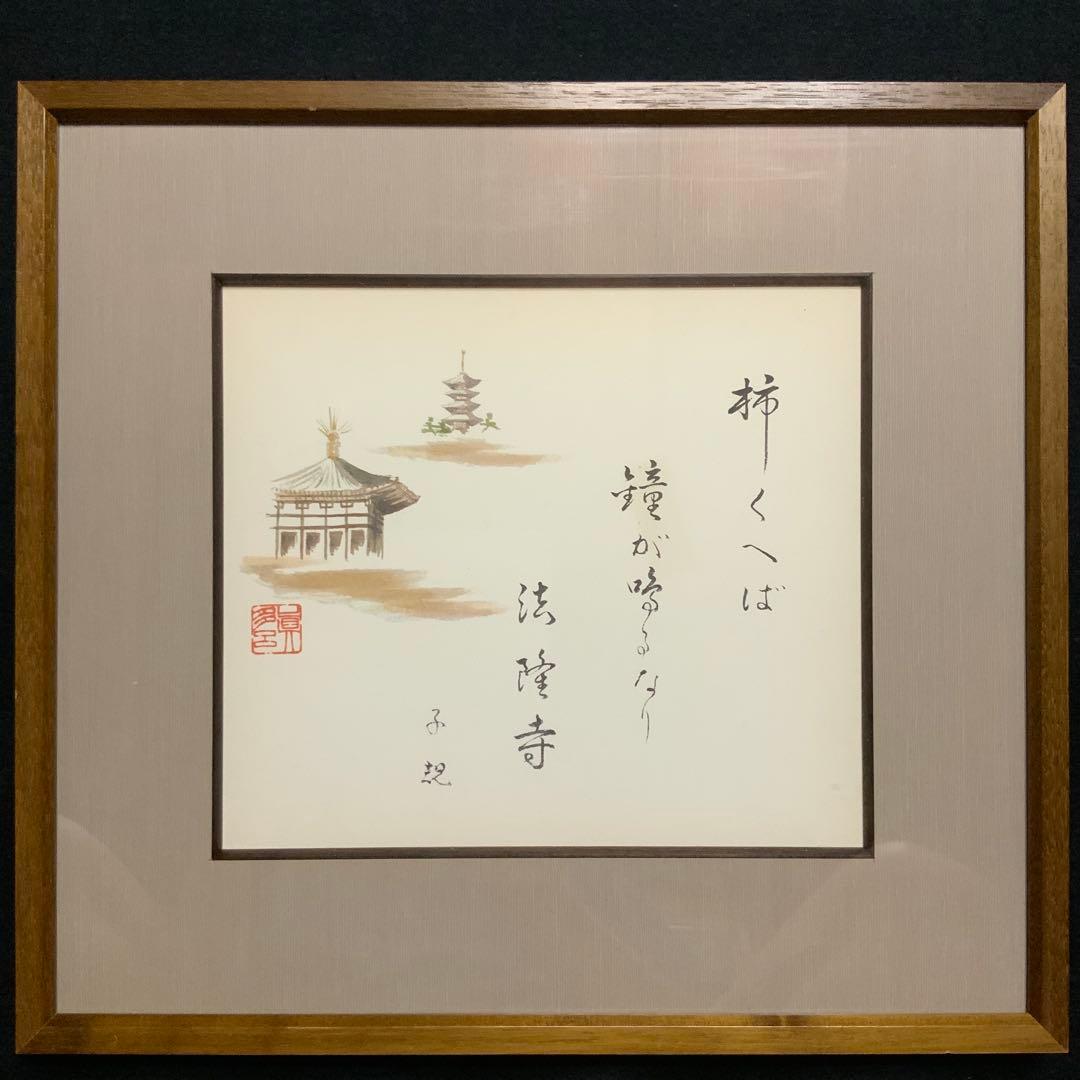 柿くへば
鐘が鳴るなり
法隆寺
子規